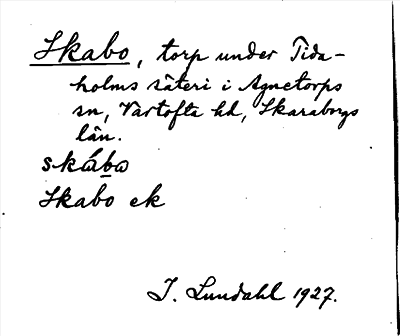 Skabo, torp under Tida-
holms säteri i Agnetorps
sn, Vartofta hd, Skaraborgs
län.
skábo
Skabo ek
I. Lundahl 1927.